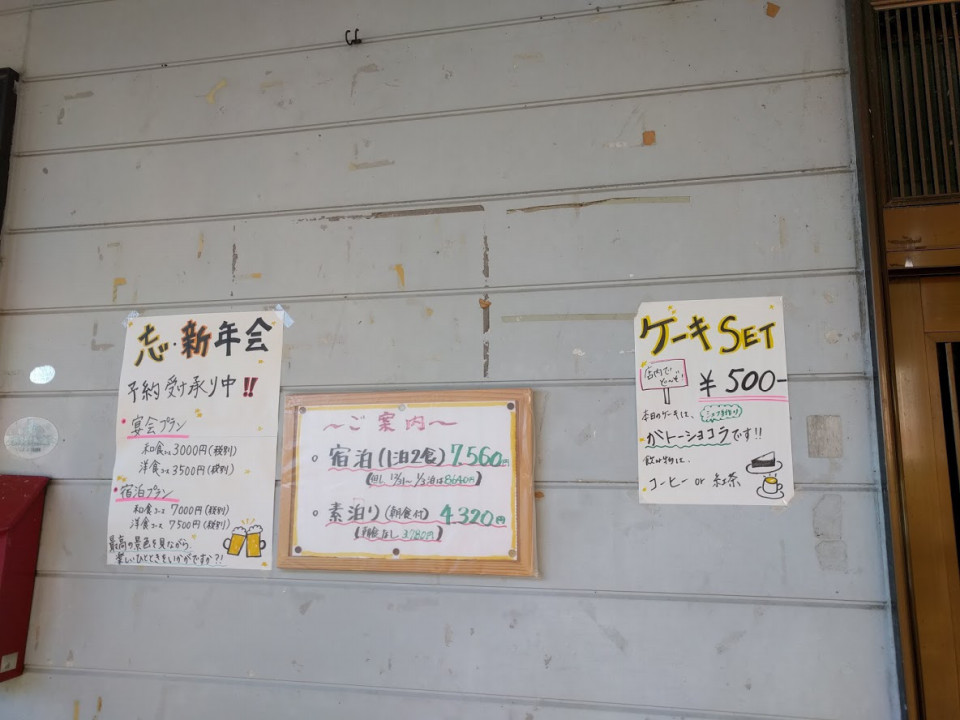 忘・新年会
予約受け承り中!!
・宴会プラン
和食コース 3000円(税別)
洋食コース 3500円(税別)
・宿泊プラン
和食コース 7000円(税別)
洋食コース 7500円(税別)
最高の景色を見ながら
楽しいひとときをいかがですか?!
〜ご案内〜
宿泊(1泊2食) 7,560円
(但し 12/31〜 1/3泊は8640円)
素泊り(朝食付) 4,320円
(朝食なし 3780円)
ケーキSET
店内で
どうぞ!
¥500-
本日のケーキは、
ガトーショコラです!!
飲み物は、
コーヒー or 紅茶